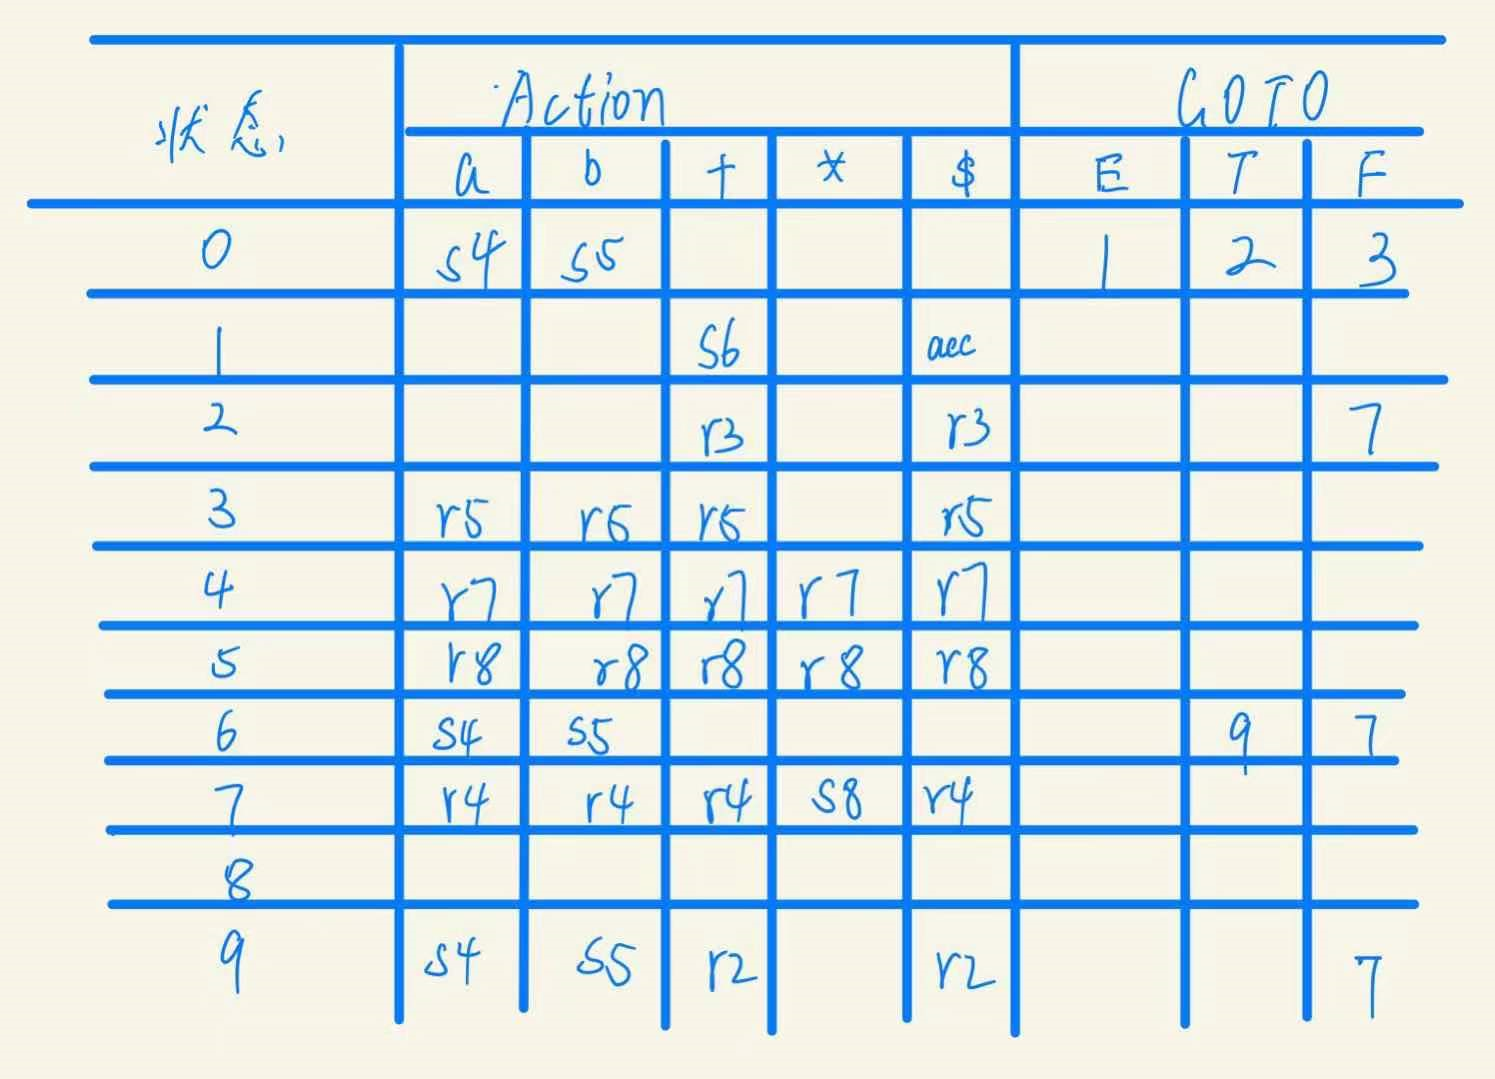 状态 Action GOTO
a b + * $ E T F
0 s4 s5 1 2 3
1 s6 acc
2 r3 r3 7
3 r5 r6 r6 r5
4 r7 r7 r7 r7 r7
5 r8 r8 r8 r8 r8
6 s4 s5 9 7
7 r4 r4 r4 s8 r4
8
9 s4 s5 r2 r2 7